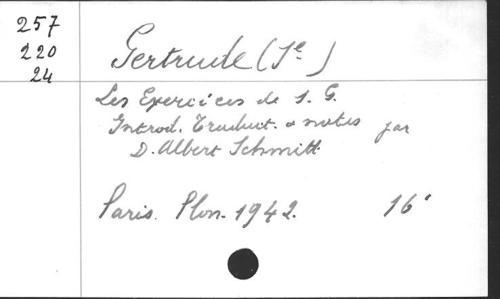 257
220
24
Gertrude (Se)
Les Exercices de S. G.
Introd. Traduct. & notes par
D. Albert Schmitt
Paris. Plon. 1942. 16°